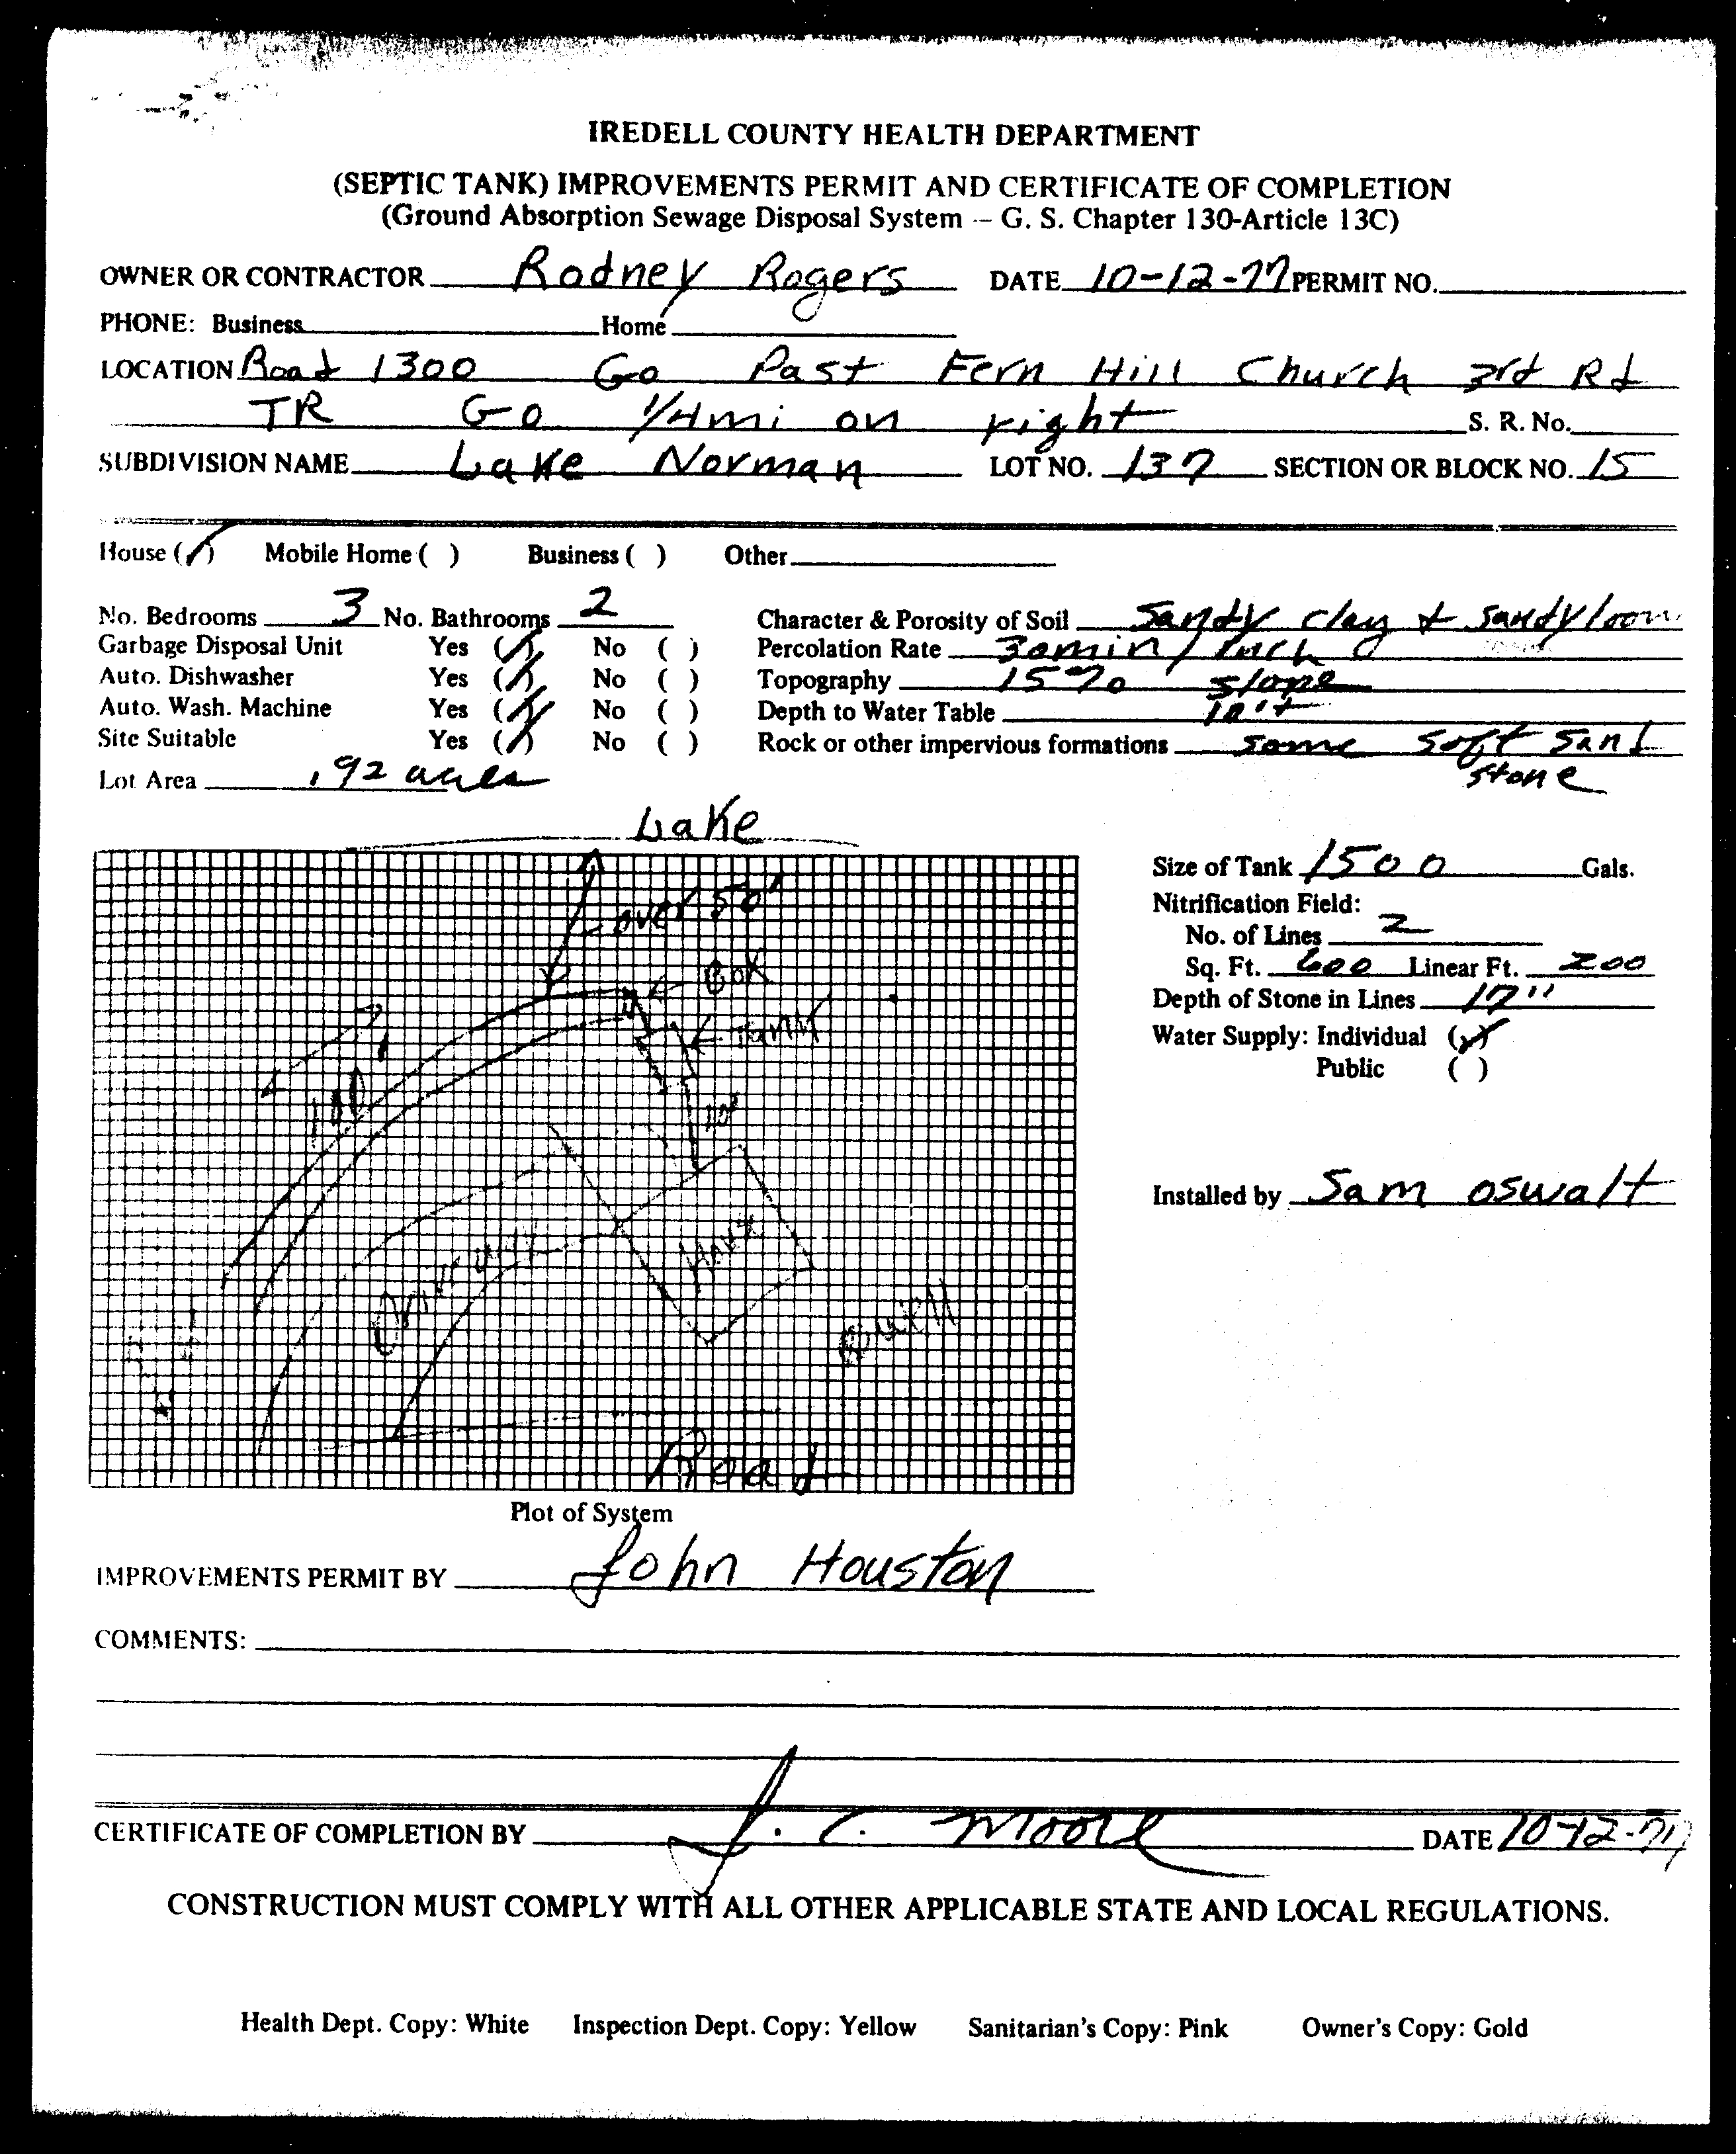 IREDELL COUNTY HEALTH DEPARTMENT
(SEPTIC TANK) IMPROVEMENTS PERMIT AND CERTIFICATE OF COMPLETION
(Ground Absorption Sewage Disposal System -- G. S. Chapter 130-Article 13C)
OWNER OR CONTRACTOR Rodney Rogers DATE 10-12-77 PERMIT NO.
PHONE: Business Home
LOCATION Road 1300 Go Past Fern Hill Church 3rd Rd
TR Go 1/4 mi on right S. R. No.
SUBDIVISION NAME Lake Norman LOT NO. 137 SECTION OR BLOCK NO. 15
House (✓) Mobile Home ( ) Business ( ) Other
No. Bedrooms 3 No. Bathrooms 2 Character & Porosity of Soil Sandy clay & sandy loom
Garbage Disposal Unit Yes (✓) No ( ) Percolation Rate 30min / Inch
Auto. Dishwasher Yes (✓) No ( ) Topography 15% slope
Auto. Wash. Machine Yes (✓) No ( ) Depth to Water Table 10'+
Site Suitable Yes (✓) No ( ) Rock or other impervious formations some soft sand
Lot Area .92 acres stone
Lake
over 50'
Box
Tank
100'
10'
Driveway
House
well
Road
Plot of System
Size of Tank 1500 Gals.
Nitrification Field:
No. of Lines 2
Sq. Ft. 600 Linear Ft. 200
Depth of Stone in Lines 17"
Water Supply: Individual (✓)
Public ( )
Installed by Sam Oswalt
IMPROVEMENTS PERMIT BY John Houston
COMMENTS:
CERTIFICATE OF COMPLETION BY J. C. Moore DATE 10-12-77
CONSTRUCTION MUST COMPLY WITH ALL OTHER APPLICABLE STATE AND LOCAL REGULATIONS.
Health Dept. Copy: White Inspection Dept. Copy: Yellow Sanitarian's Copy: Pink Owner's Copy: Gold